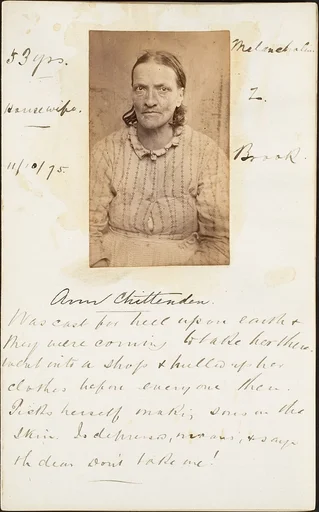 53 yrs.
Housewife.
11/10/75.
Melancholia
2.
Brook.
Ann Chittenden.
Was cast for hell upon earth &
they were coming to take her there.
Went into a shop & pulled up her
clothes before everyone there.
Picks herself making sores on the
skin. Is depressed, moans, & says
oh dear don't take me!